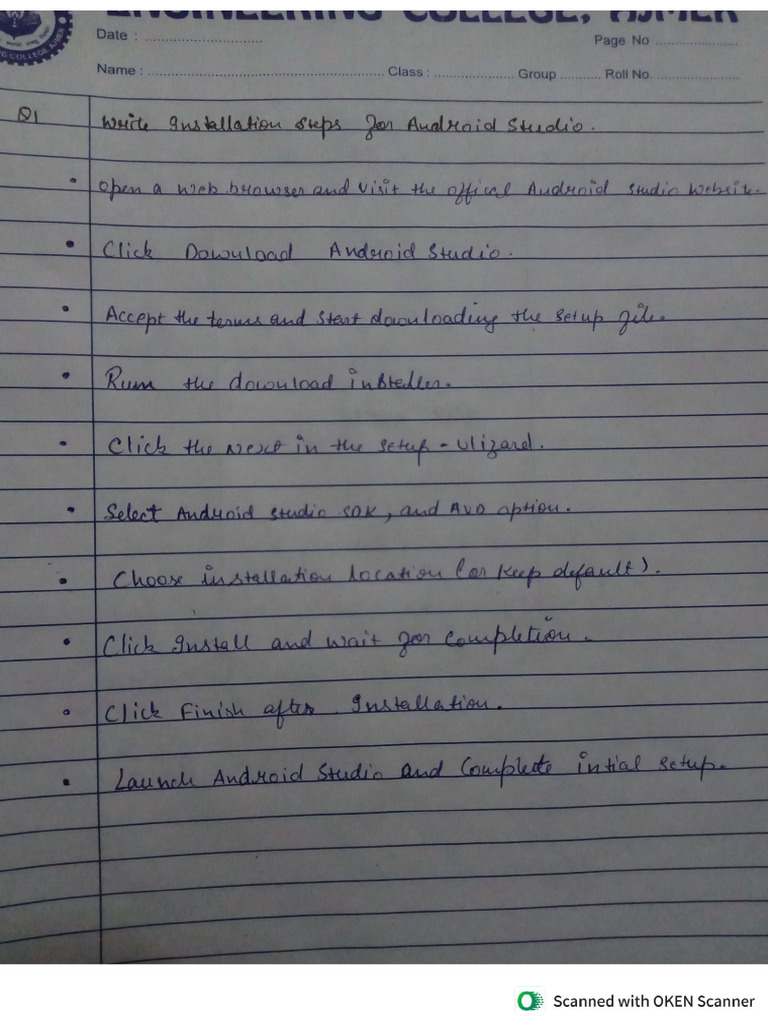 ENGINEERING COLLEGE, AJMER
Date : .............................. Page No .....................
Name : ............................................................ Class : .................... Group ........... Roll No. .....................
Q1 Write Installation Steps for Android Studio.
• Open a web browser and visit the offical Android Studio Website.
• Click Download Android Studio.
• Accept the terms and start downloading the setup file.
• Run the download installer.
• Click the Next in the setup - wizard.
• Select Android Studio SDK, and AVD option.
• Choose installation location (or keep default).
• Click Install and wait for completion.
• Click Finish after Installation.
• Launch Android Studio and Complete intial setup.
Scanned with OKEN Scanner